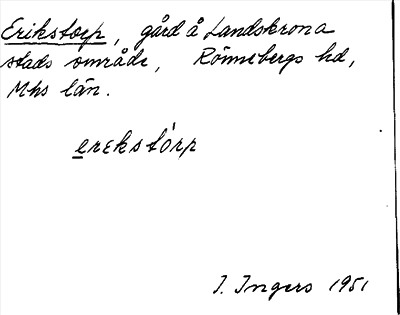 Erikstorp, gård å Landskrona
stads område, Rönnebergs hd,
Mhs län.
erekstórp
I. Ingers 1951